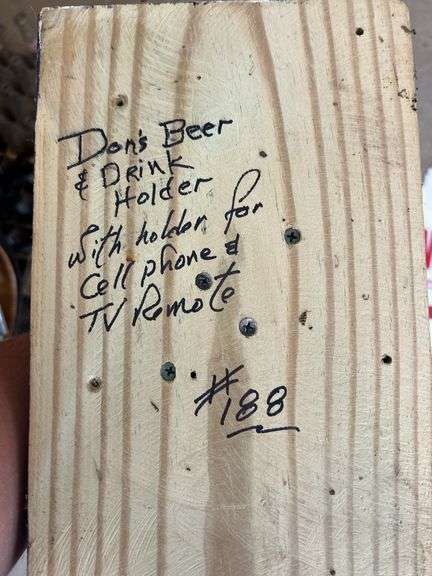 Don's Beer
& Drink
Holder
with holder for
Cell phone &
TV Remote
#188